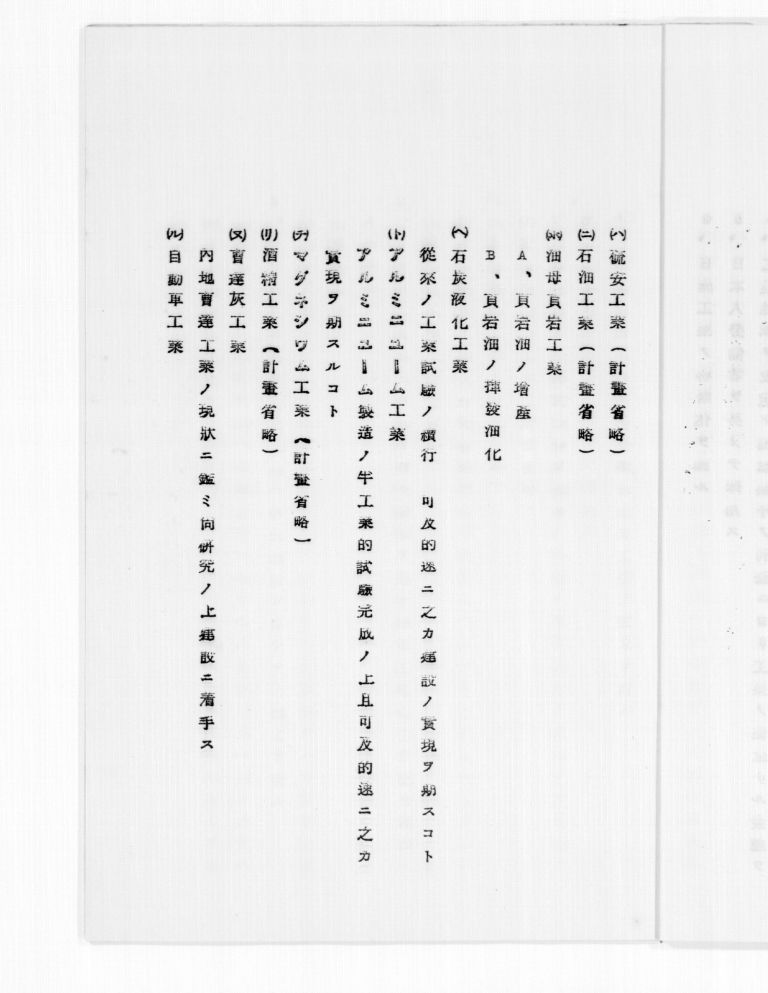 (ハ)硫安工業(計畫省略)
(ニ)石油工業(計畫省略)
(ホ)油母頁岩工業
A、頁岩油ノ增產
B、頁岩油ノ揮發油化
(ヘ)石炭液化工業
從來ノ工業試驗ノ續行 可及的速ニ之カ建設ノ實現ヲ期スコト
(ト)アルミニユーム工業
アルミニユーム製造ノ半工業的試驗完成ノ上且可及的速ニ之カ
實現ヲ期スルコト
(チ)マグネシウム工業(計畫省略)
(リ)酒精工業(計畫省略)
(ヌ)曹達灰工業
內地曹達工業ノ現狀ニ鑑ミ尙硏究ノ上建設ニ着手ス
(ル)自動車工業